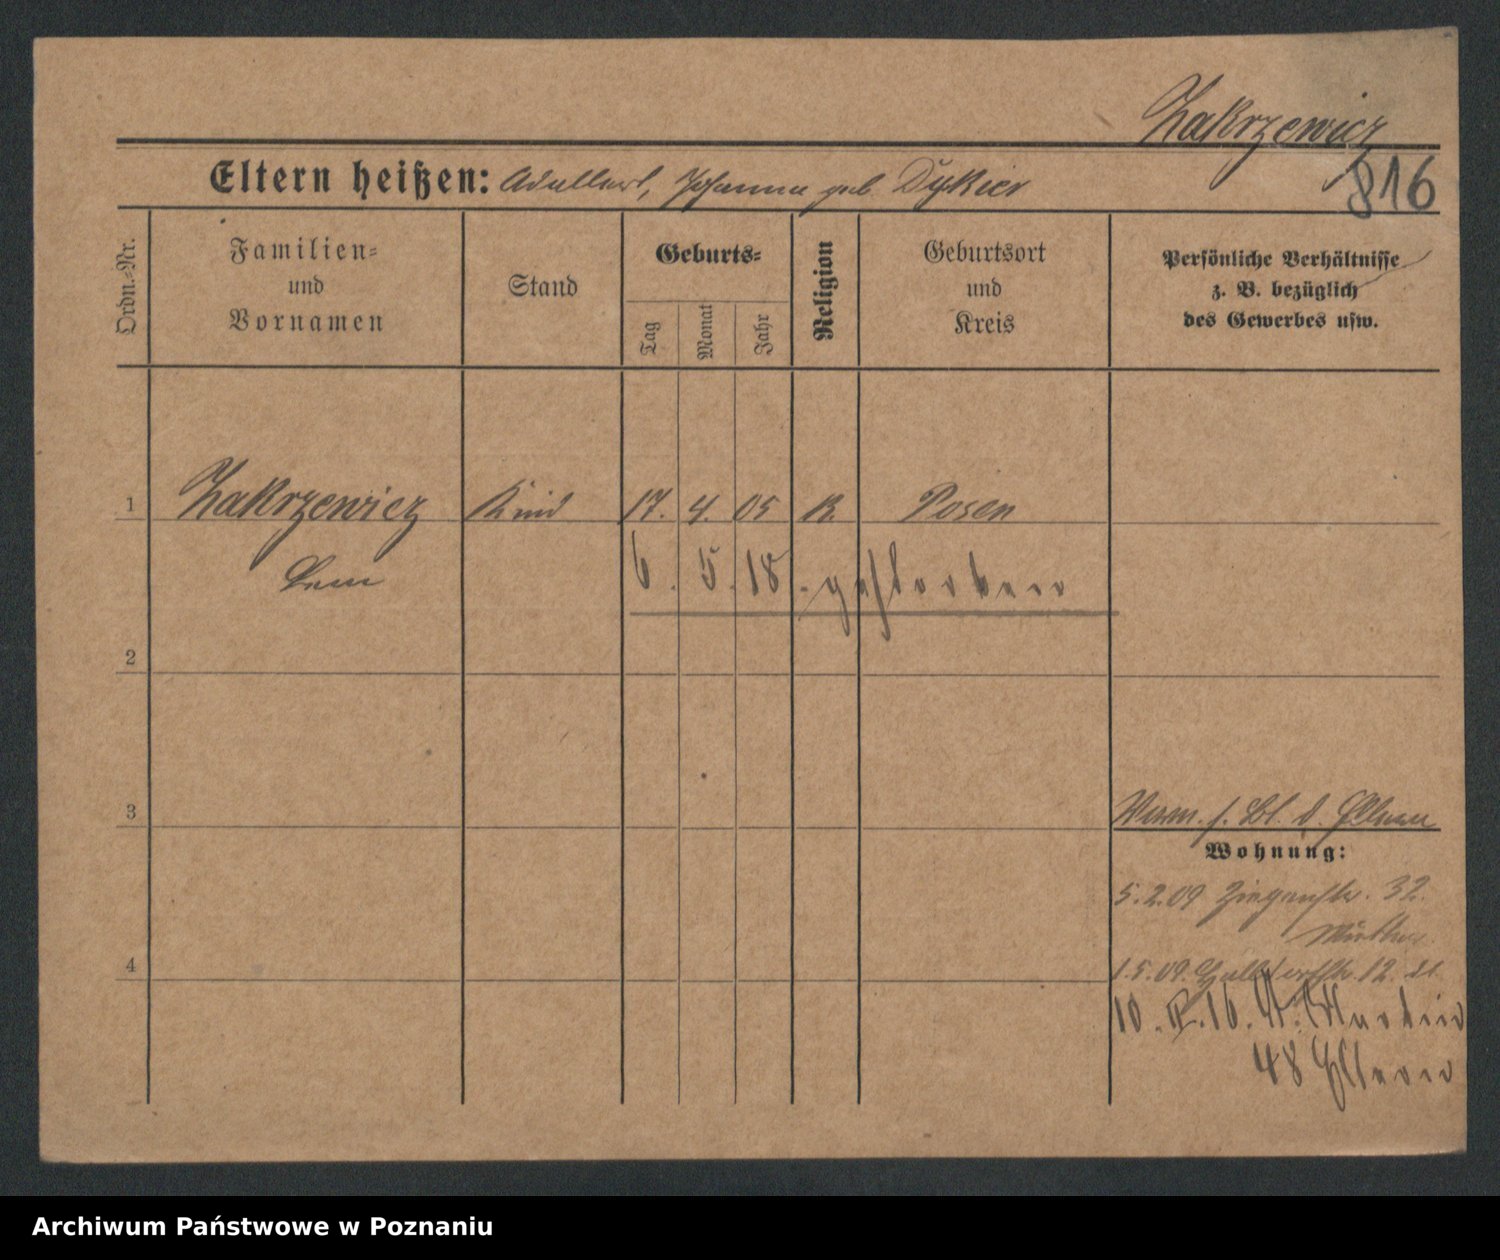 Zakrzewicz
816
Eltern heißen: Adalbert, Johanna geb. Dykier
Ordn.-Nr.
Familien-
und
Vornamen
Stand
Geburts-
Tag
Monat
Jahr
Religion
Geburtsort
und
Kreis
Persönliche Verhältnisse
z. B. bezüglich
des Gewerbes usw.
1 Zakrzewicz Kind 17. 4. 05 K. Posen
6. 5. 18. gestorben
2
3
Verm. s. Bl. d. Eltern
Wohnung:
5.2.09 32.
4
1.5.09. 12.
10. 16. St. Martin
48 Eltern
Archiwum Państwowe w Poznaniu